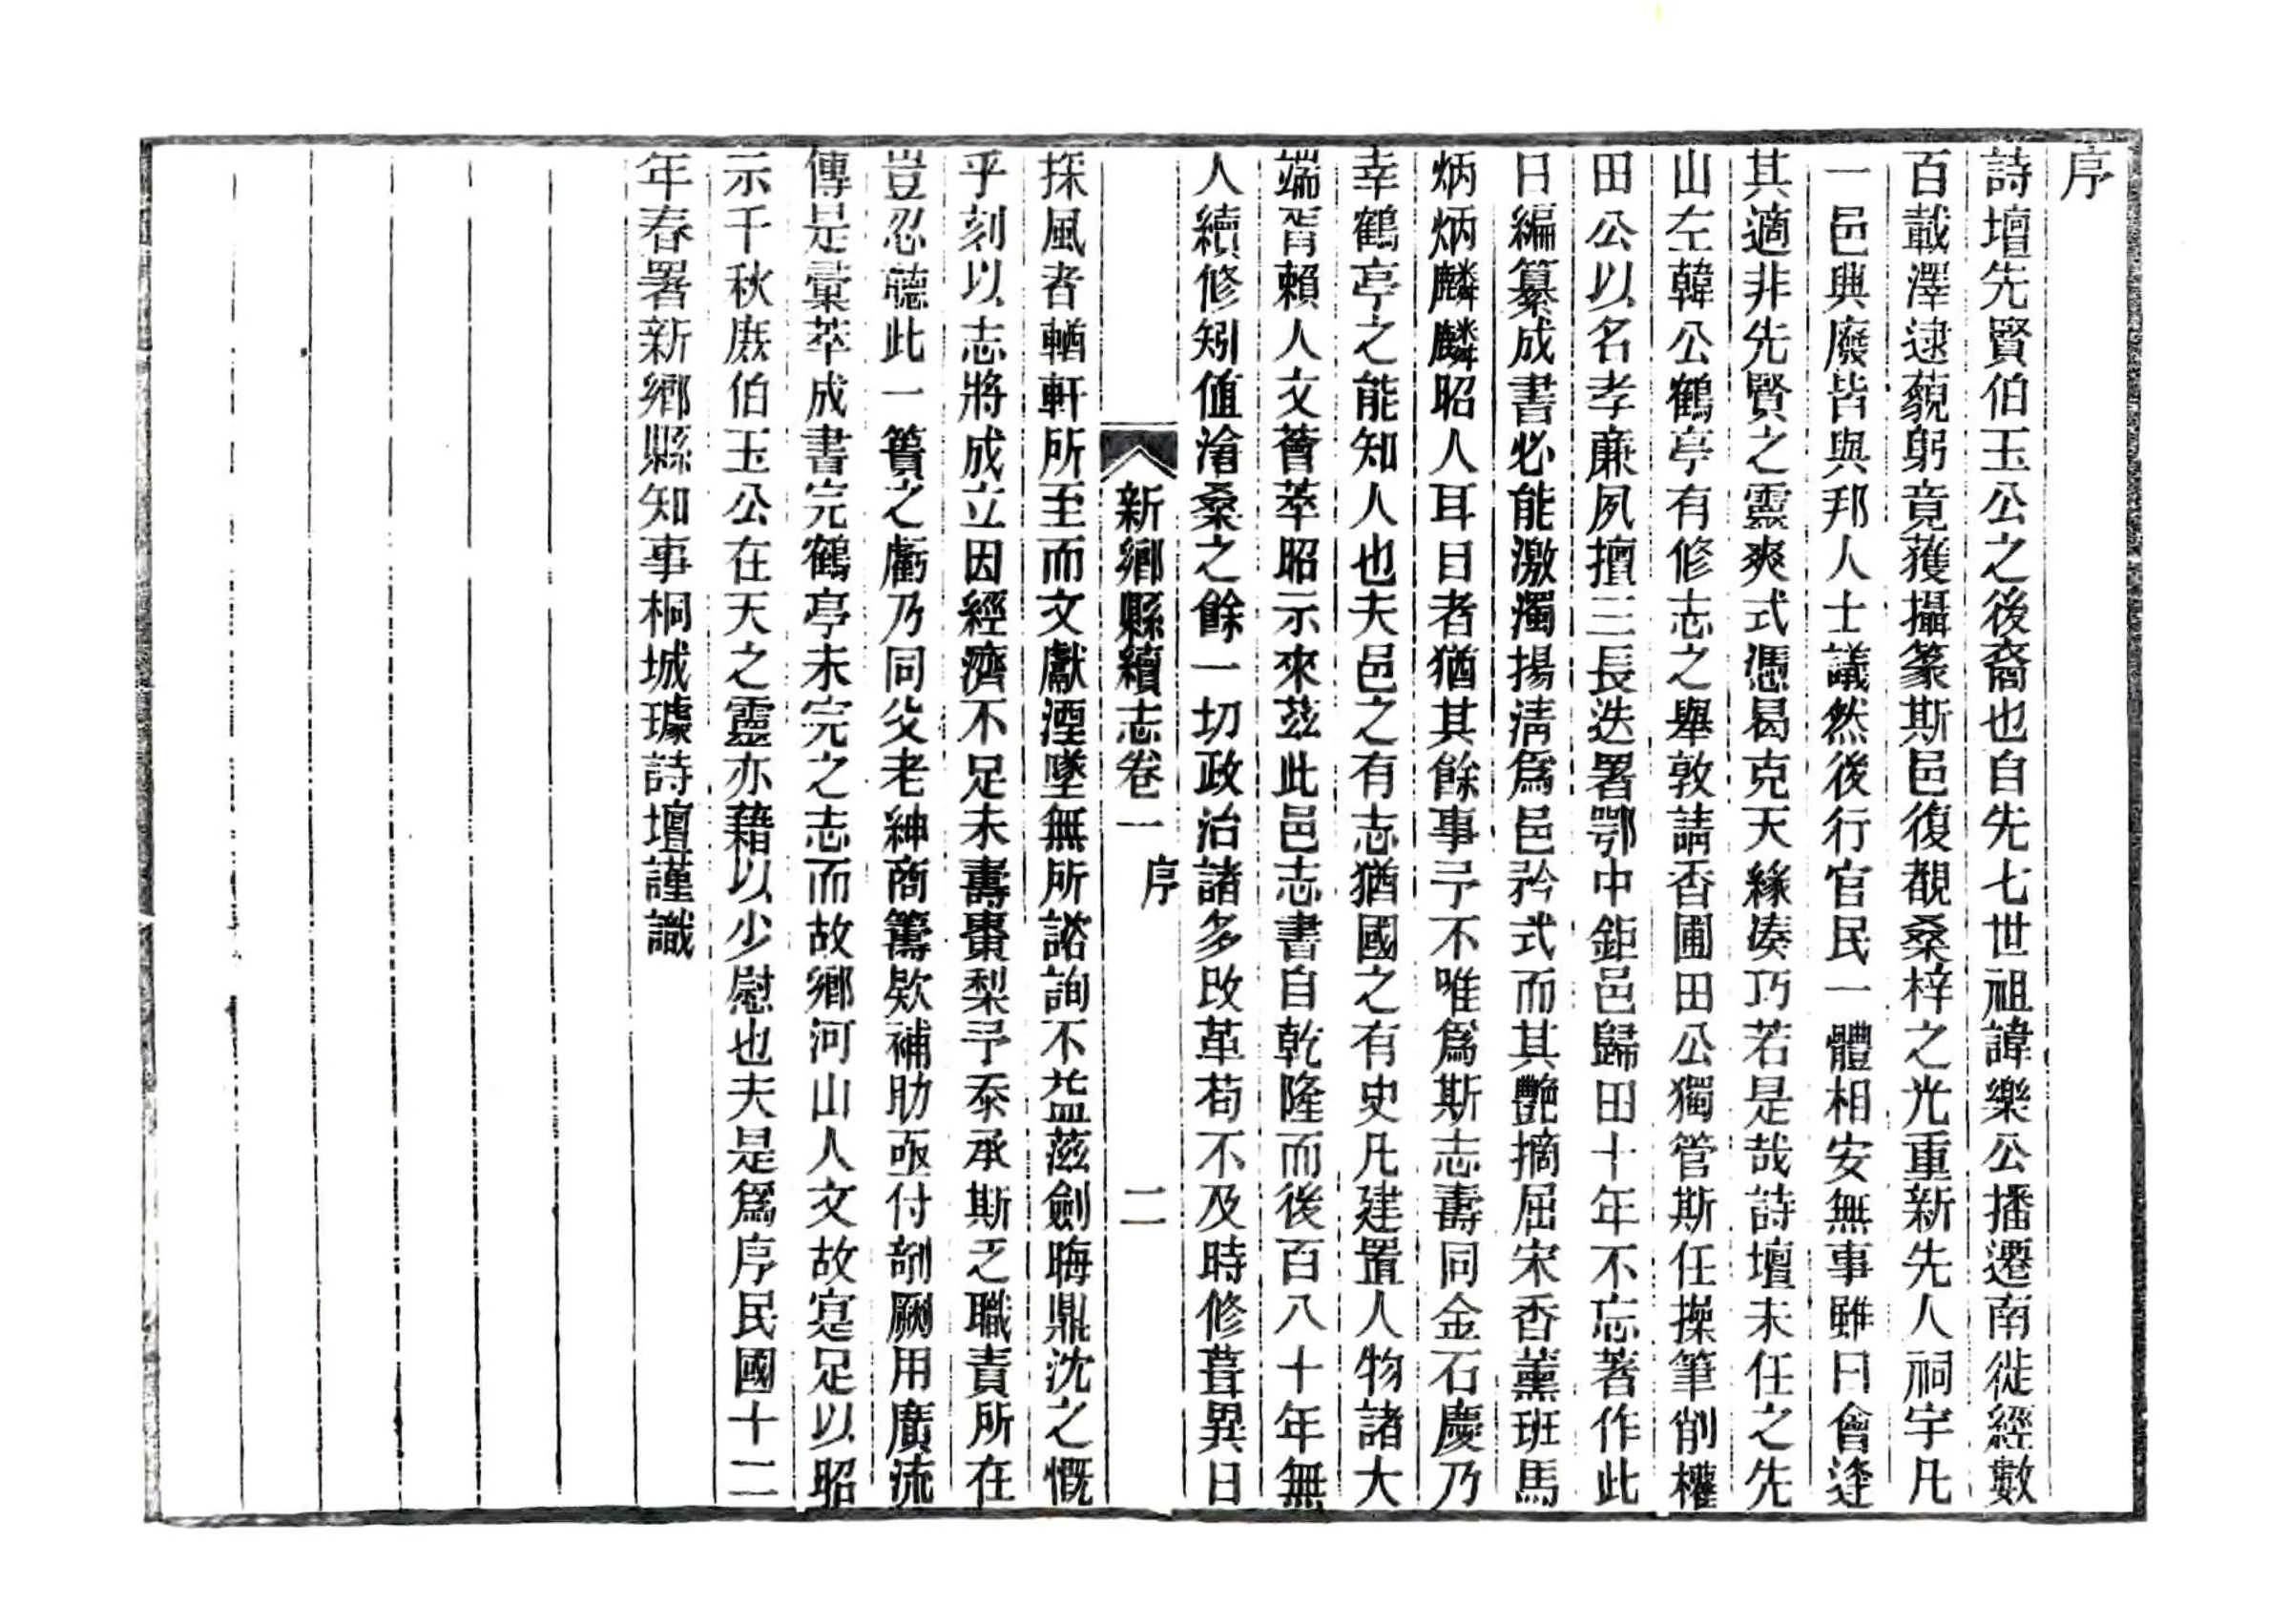 序
詩壇先賢伯玉公之後裔也自先七世祖諱樂公播遷南徙經數
百載澤逮藐躬竟獲攝篆斯邑復覩桑梓之光重新先人祠宇凡
一邑興廢皆與邦人士議然後行官民一體相安無事雖曰會逢
其適非先賢之靈爽式憑曷克天緣湊巧若是哉詩壇未任之先
山左韓公鶴亭有修志之舉敦請香圃田公獨管斯任操筆削權
田公以名孝廉夙擅三長迭署鄂中鉅邑歸田十年不忘著作此
日編纂成書必能激濁揚清爲邑矜式而其艷摘屈宋香薰班馬
炳炳麟麟昭人耳目者猶其餘事予不唯爲斯志壽同金石慶乃
幸鶴亭之能知人也夫邑之有志猶國之有史凡建置人物諸大
端胥賴人文薈萃昭示來茲此邑志書自乾隆而後百八十年無
人續修矧值滄桑之餘一切政治諸多改革苟不及時修葺異日
新鄉縣續志卷一　序　二
採風者輶軒所至而文獻湮墜無所諮詢不益滋劍晦鼎沈之慨
乎刻以志將成立因經濟不足未壽棗梨予忝承斯乏職責所在
豈忍聽此一簣之虧乃同父老紳商籌欵補助亟付剞劂用廣流
傳是彙萃成書完鶴亭未完之志而故鄉河山人文故寔足以昭
示千秋庶伯玉公在天之靈亦藉以少慰也夫是爲序民國十二
年春署新鄉縣知事桐城璩詩壇謹識